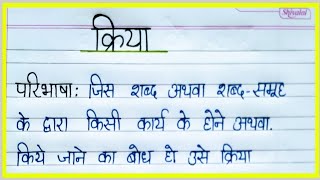 Shivalal
क्रिया
परिभाषा: जिस शब्द अथवा शब्द-समूह
के द्वारा किसी कार्य के होने अथवा.
किये जाने का बोध हो उसे क्रिया